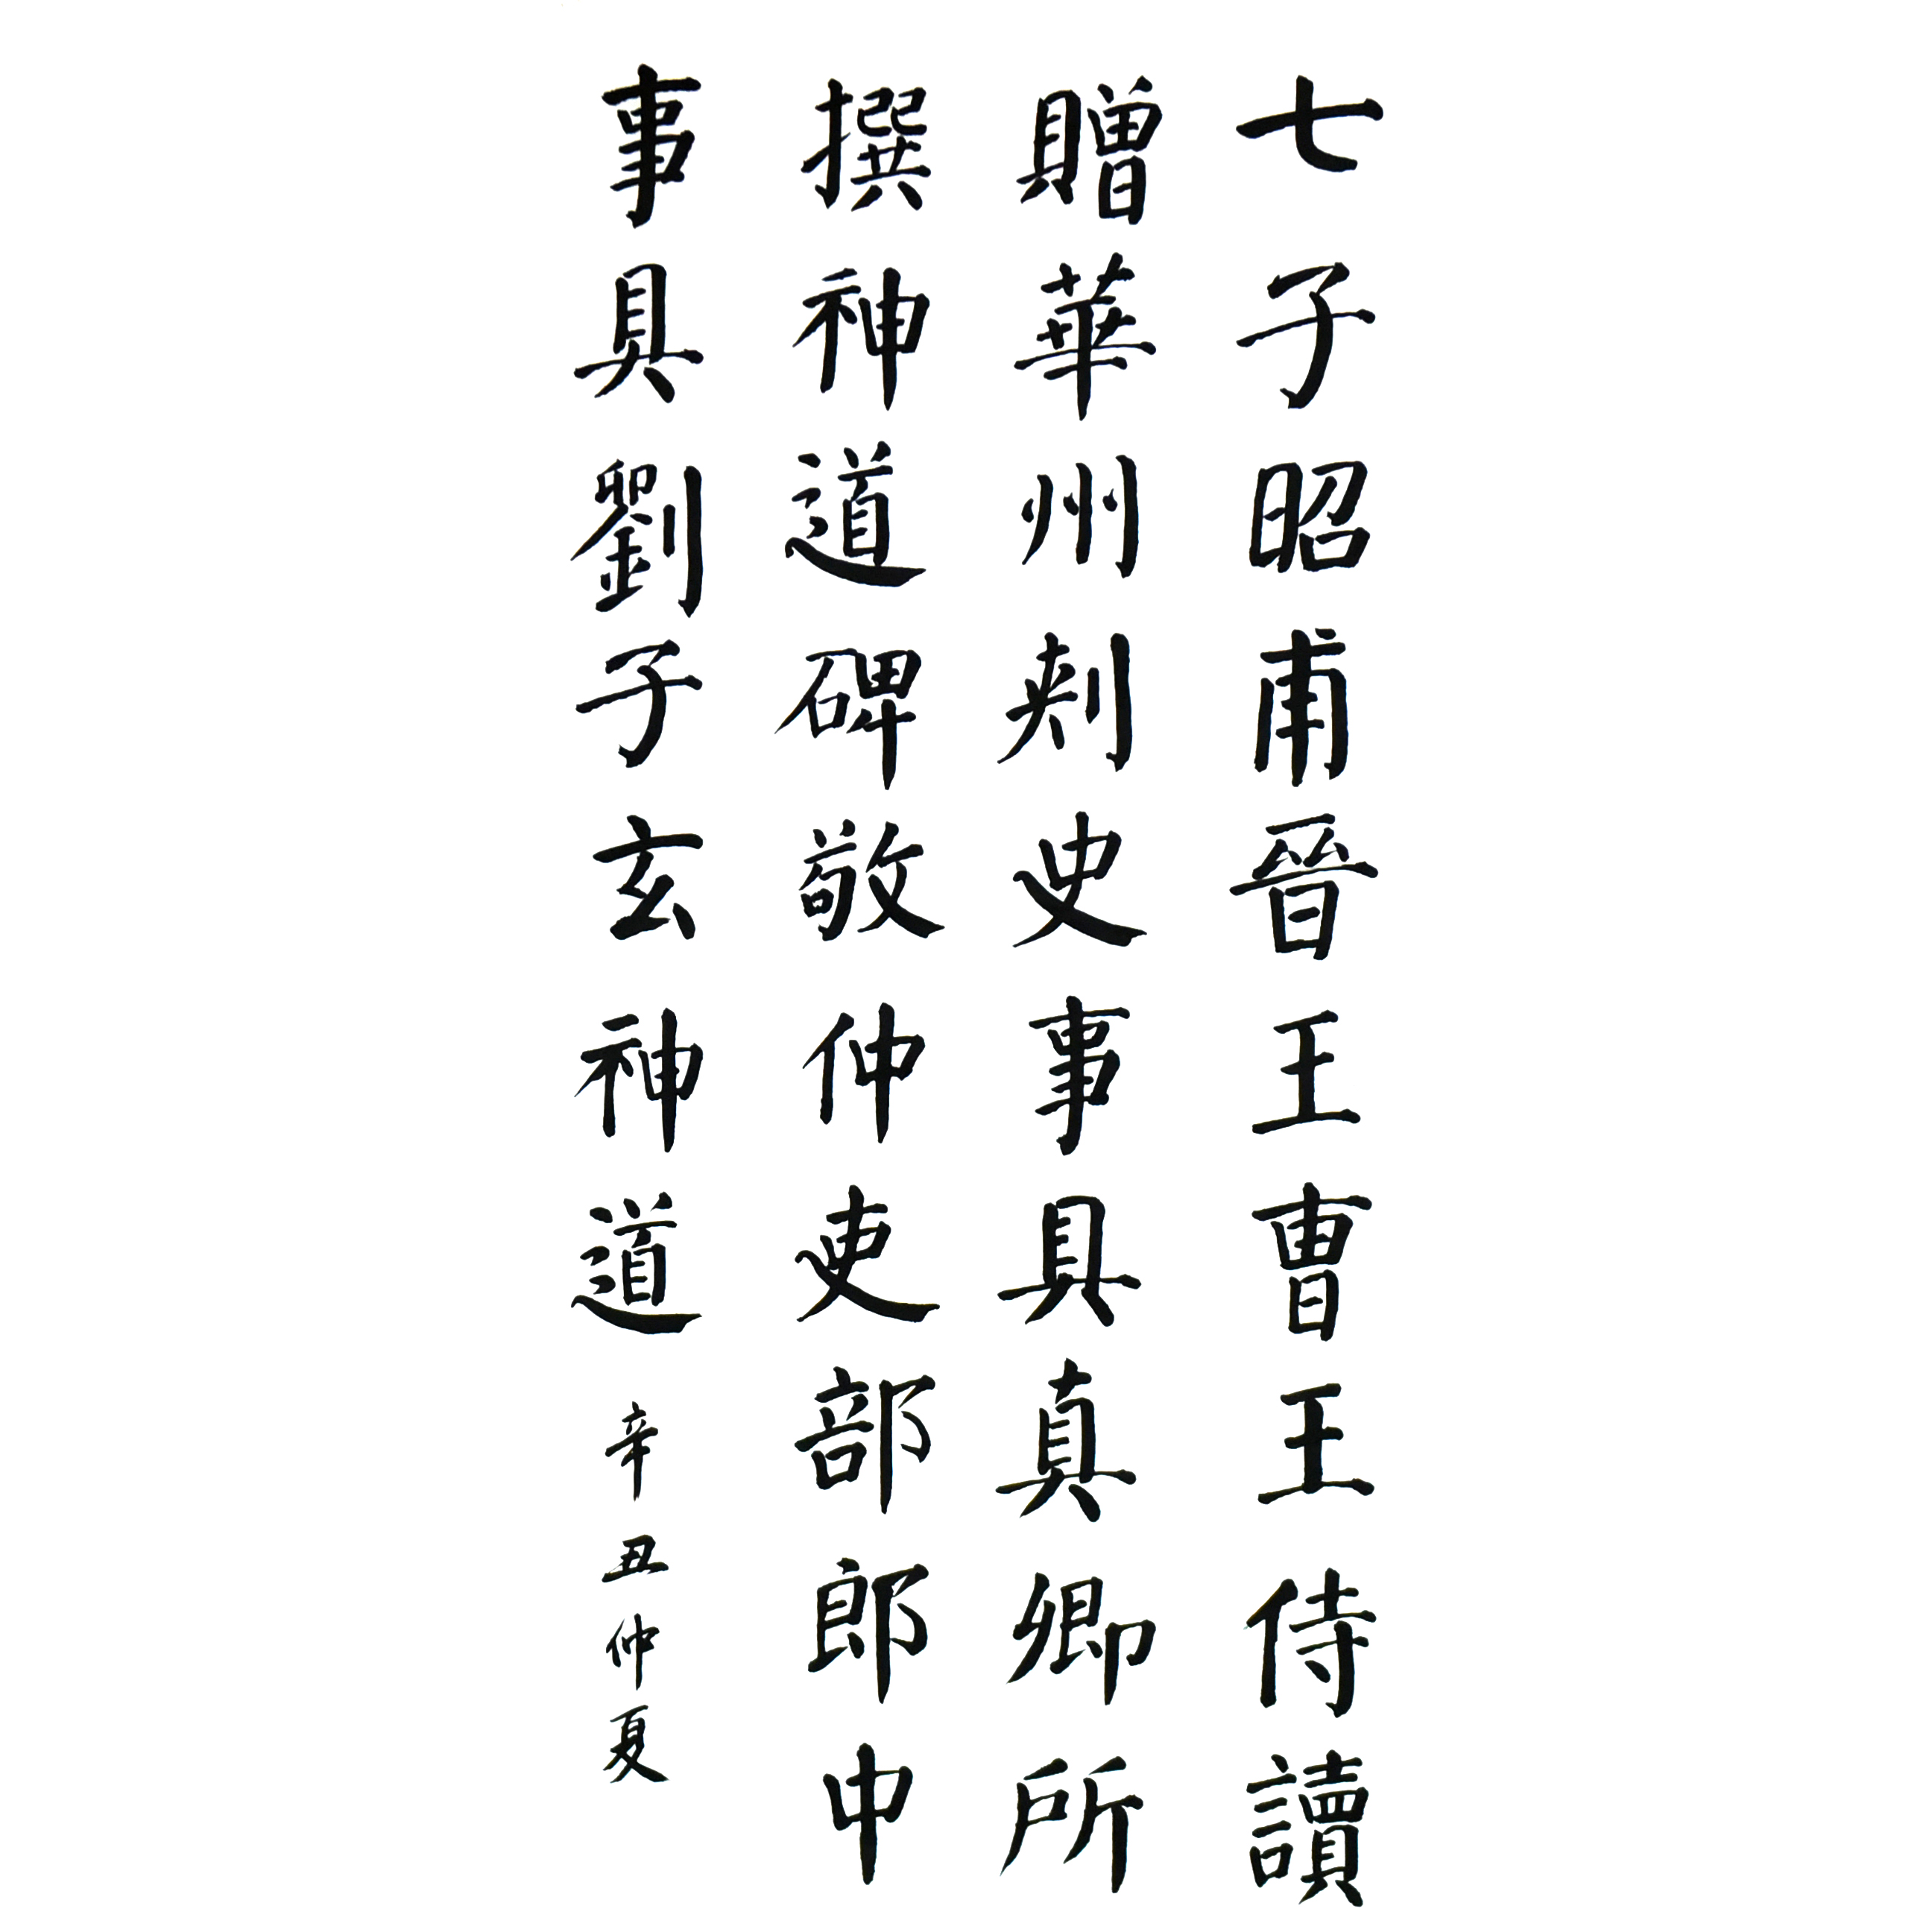 七子昭甫晉王曹王侍讀
贈華州刾史事具真卿所
撰神道碑敬仲吏部郎中
事具劉子玄神道辛丑仲夏